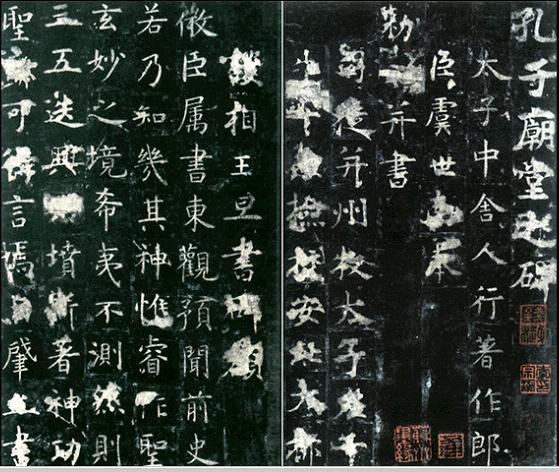 孔子廟堂之碑
太子中舍人行著作郎
臣虞世南奉
勅并書
徒并州牧太子左千
撫挍安北大都
護相王旦書碑額
微臣属書東觀預聞前史
若乃知幾其神惟睿作聖
玄妙之境希夷不測然則
三五迭興墳斯著神功
聖可得言焉肇立書